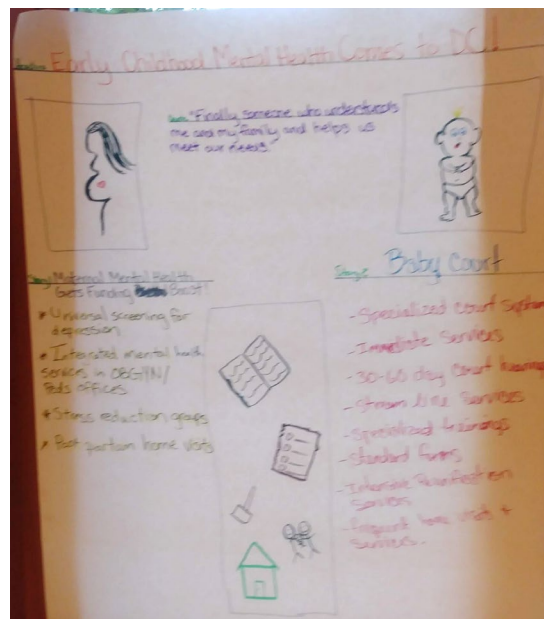 Headline Early Childhood Mental Health Comes to DC!
Quote "Finally, someone who understands
me and my family and helps us
meet our needs."
Story 1 Maternal Mental Health
Gets Funding Boost!
* Universal screening for
depression
* Integrated mental health
services in OBGYN/
Peds offices
* Stress reduction groups
* Post partum home visits
Story 2 Baby Court
- Specialized court system
- Immediate services
- 30-60 day court hearings
- Stream line services
- Specialized trainings
- Standard forms
- Intensive Reunification
services
- frequent home visits +
services.